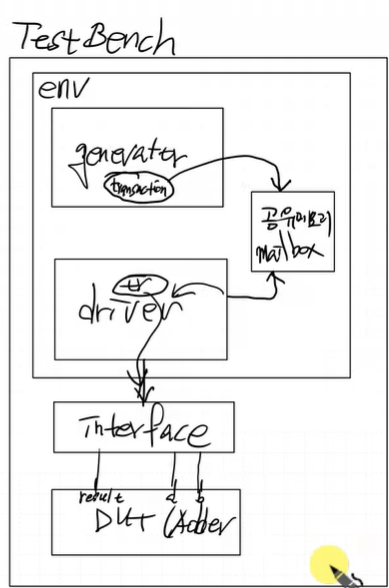 TestBench
env
generator
transaction
공유메모리
mailbox
tr
driver
interface
result a b
DUT (Adder